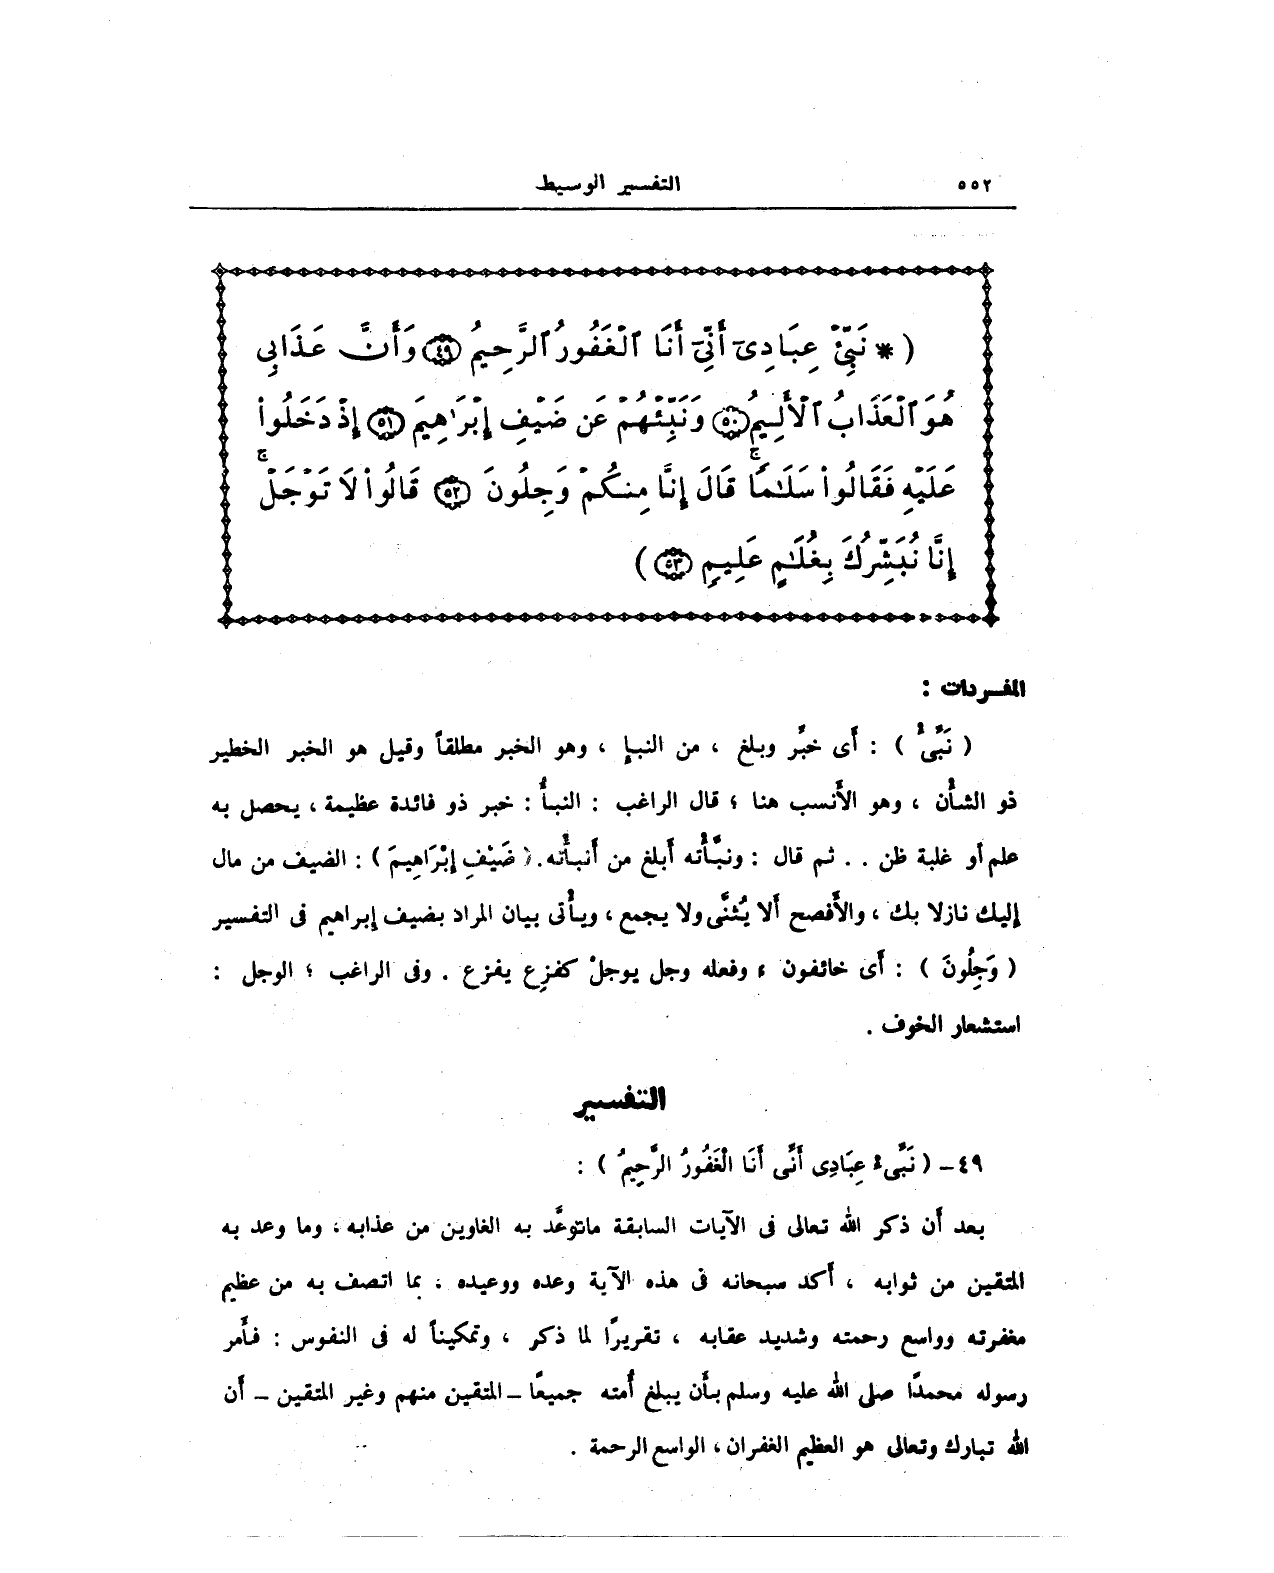 ٥٥٢
التفسير الوسيط
( * نَبِّئْ عِبَادِىٓ أَنِّىٓ أَنَا ٱلْغَفُورُ ٱلرَّحِيمُ ٤٩ وَأَنَّ عَذَابِى
هُوَ ٱلْعَذَابُ ٱلْأَلِيمُ ٥٠ وَنَبِّئْهُمْ عَن ضَيْفِ إِبْرَٰهِيمَ ٥١ إِذْ دَخَلُوا۟
عَلَيْهِ فَقَالُوا۟ سَلَٰمًا ۚ قَالَ إِنَّا مِنكُمْ وَجِلُونَ ٥٢ قَالُوا۟ لَا تَوْجَلْ ۚ
إِنَّا نُبَشِّرُكَ بِغُلَٰمٍ عَلِيمٍ ٥٣ )
المفردات :
( نَبِّىْٔ ) : أَى خبِّر وبلغ ، من النبإِ ، وهو الخبر مطلقاً وقيل هو الخبر الخطير
ذو الشأْن ، وهو الأَنسب هنا ؛ قال الراغب : النبأُ : خبر ذو فائدة عظيمة ، يحصل به
علم أو غلبة ظن . . ثم قال : ونبَّأْته أَبلغ من أَنبأْته . ( ضَيْفِ إِبْرَاهِيمَ ) : الضيف من مال
إليك نازلا بك ، والأَفصح ألا يُثنَّى ولا يجمع ، ويأْتى بيان المراد بضيف إبراهيم فى التفسير
( وَجِلُونَ ) : أَى خائفون ، وفعله وجل يوجلْ كفزِع يفزع . وفى الراغب ؛ الوجل :
استشعار الخوف .
التفسير
٤٩ - ( نَبِّىءْ عِبَادِى أَنِّى أَنَا الْغَفُورُ الرَّحِيمُ ) :
بعد أَن ذكر الله تعالى فى الآيات السابقة ماتوعَّد به الغاوين من عذابه ، وما وعد به
المتقين من ثوابه ، أَكد سبحانه فى هذه الآية وعده ووعيده ، بما اتصف به من عظيم
مغفرته وواسع رحمته وشديد عقابه ، تقريرًا لما ذكر ، وتمكيناً له فى النفوس : فأَمر
رسوله محمدًا صلى الله عليه وسلم بأَن يبلغ أُمته جميعًا - المتقين منهم وغير المتقين - أَن
الله تبارك وتعالى هو العظيم الغفران ، الواسع الرحمة .